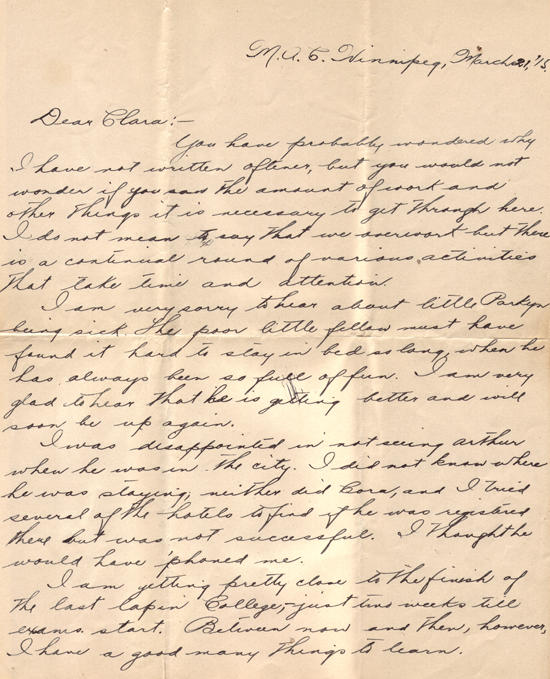 M. A. C. Winnipeg, March 21, '15,
Dear Clara:-
You have probably wondered why
I have not written oftener, but you would not
wonder if you saw the amount of work and
other things it is necessary to get through here.
I do not mean to say that we overwork but there
is a continual round of various activities
that take time and attention.
I am very sorry to hear about little Parkyn
being sick. The poor little fellow must have
found it hard to stay in bed so long, when he
has always been so full of fun. I am very
glad to hear that he is getting better and will
soon be up again.
I was disappointed in not seeing Arthur
when he was in the city. I did not know where
he was staying, neither did Cora, and I tried
several of the hotels to find if he was registered
there but was not successful. I thought he
would have 'phoned me.
I am getting pretty close to the finish of
the last lap in College,-just two weeks till
exams. start. Between now and then, however,
I have a good many things to learn.